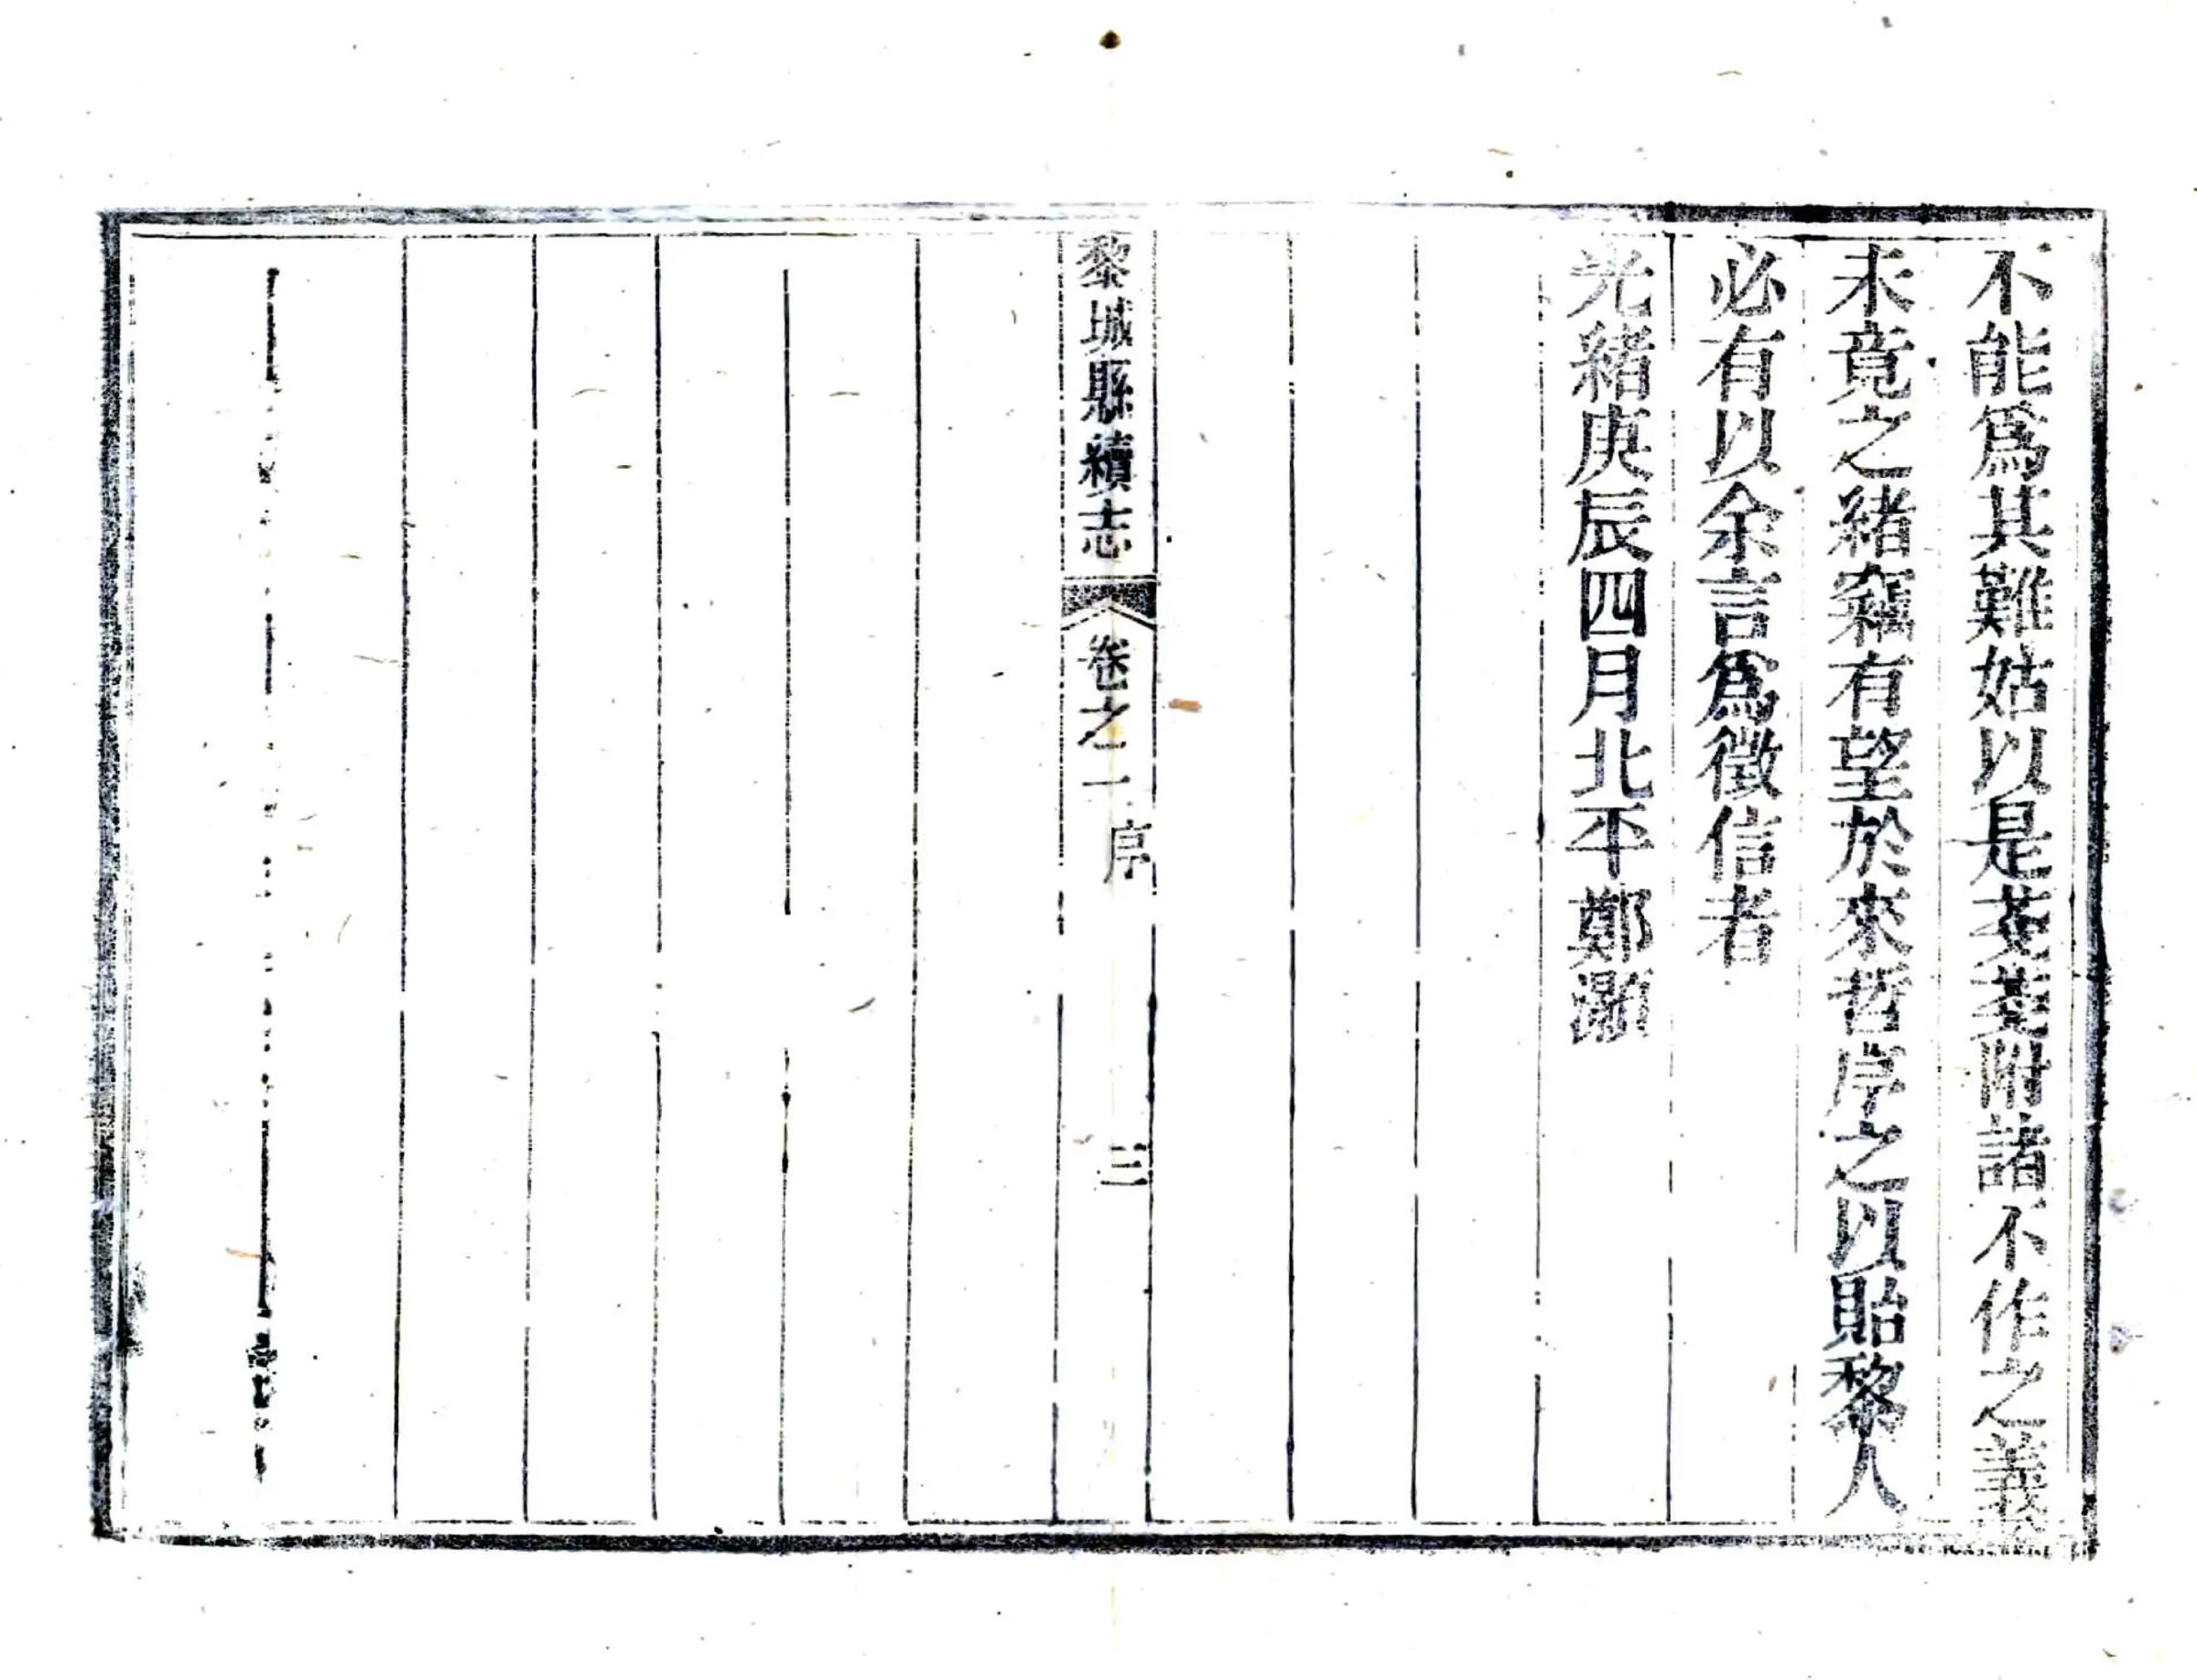 不能爲其難姑以是戔戔附諸不作之義
未竟之緒竊有望於來哲序之以貽黎人
必有以余言爲徵信者
光緒庚辰四月北平鄭灝
黎城縣續志
卷之一
序
三